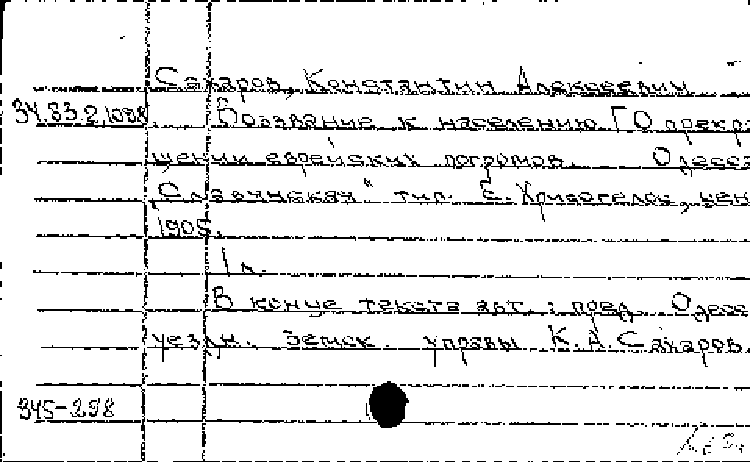 Сахаров, Константин Алексеевич
34.83.2.1088 Воззвание к населению [О прекра-
щении еврейских погромов. Одесса
Славянская" тип. Е. Хрисогелос, ценз.
1905.
1 л.
В конце текста авт.: пред. Одесс
уездн. земск. управы К.А.Сахаров.
345-298